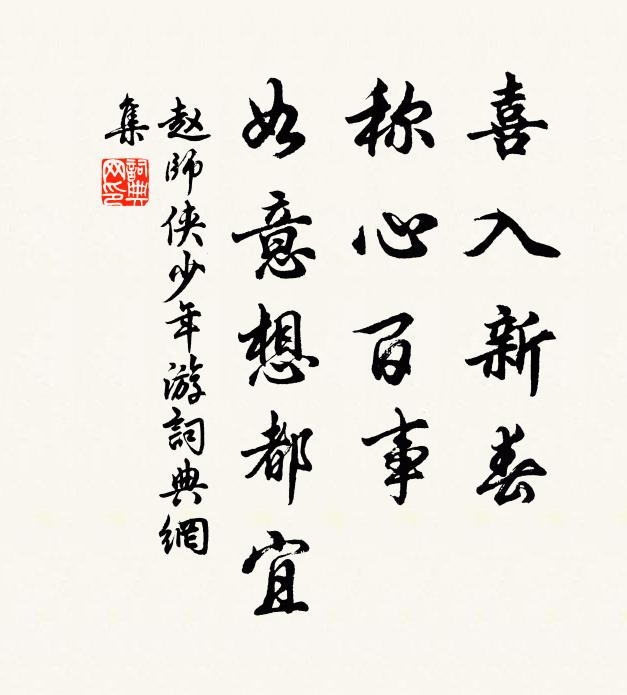 喜入新春
称心百事
如意想都宜
赵師侠少年游詞典網
集
詞典
网印